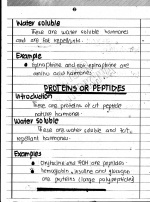 Water soluble
These are water soluble hormones
and are fat repellants.
Example
epinephrine and nor-epinephrine are
amino acid hormones
PROTEINS OR PEPTIDES
Introduction
These are proteins or of peptide
nature hormone
Water Soluble
These are water soluble and fat
repellant hormones.
Examples
Oxytocine and ADH are peptides
hemoglobin, insuline and glucagon
are proteins (large polypeptides)